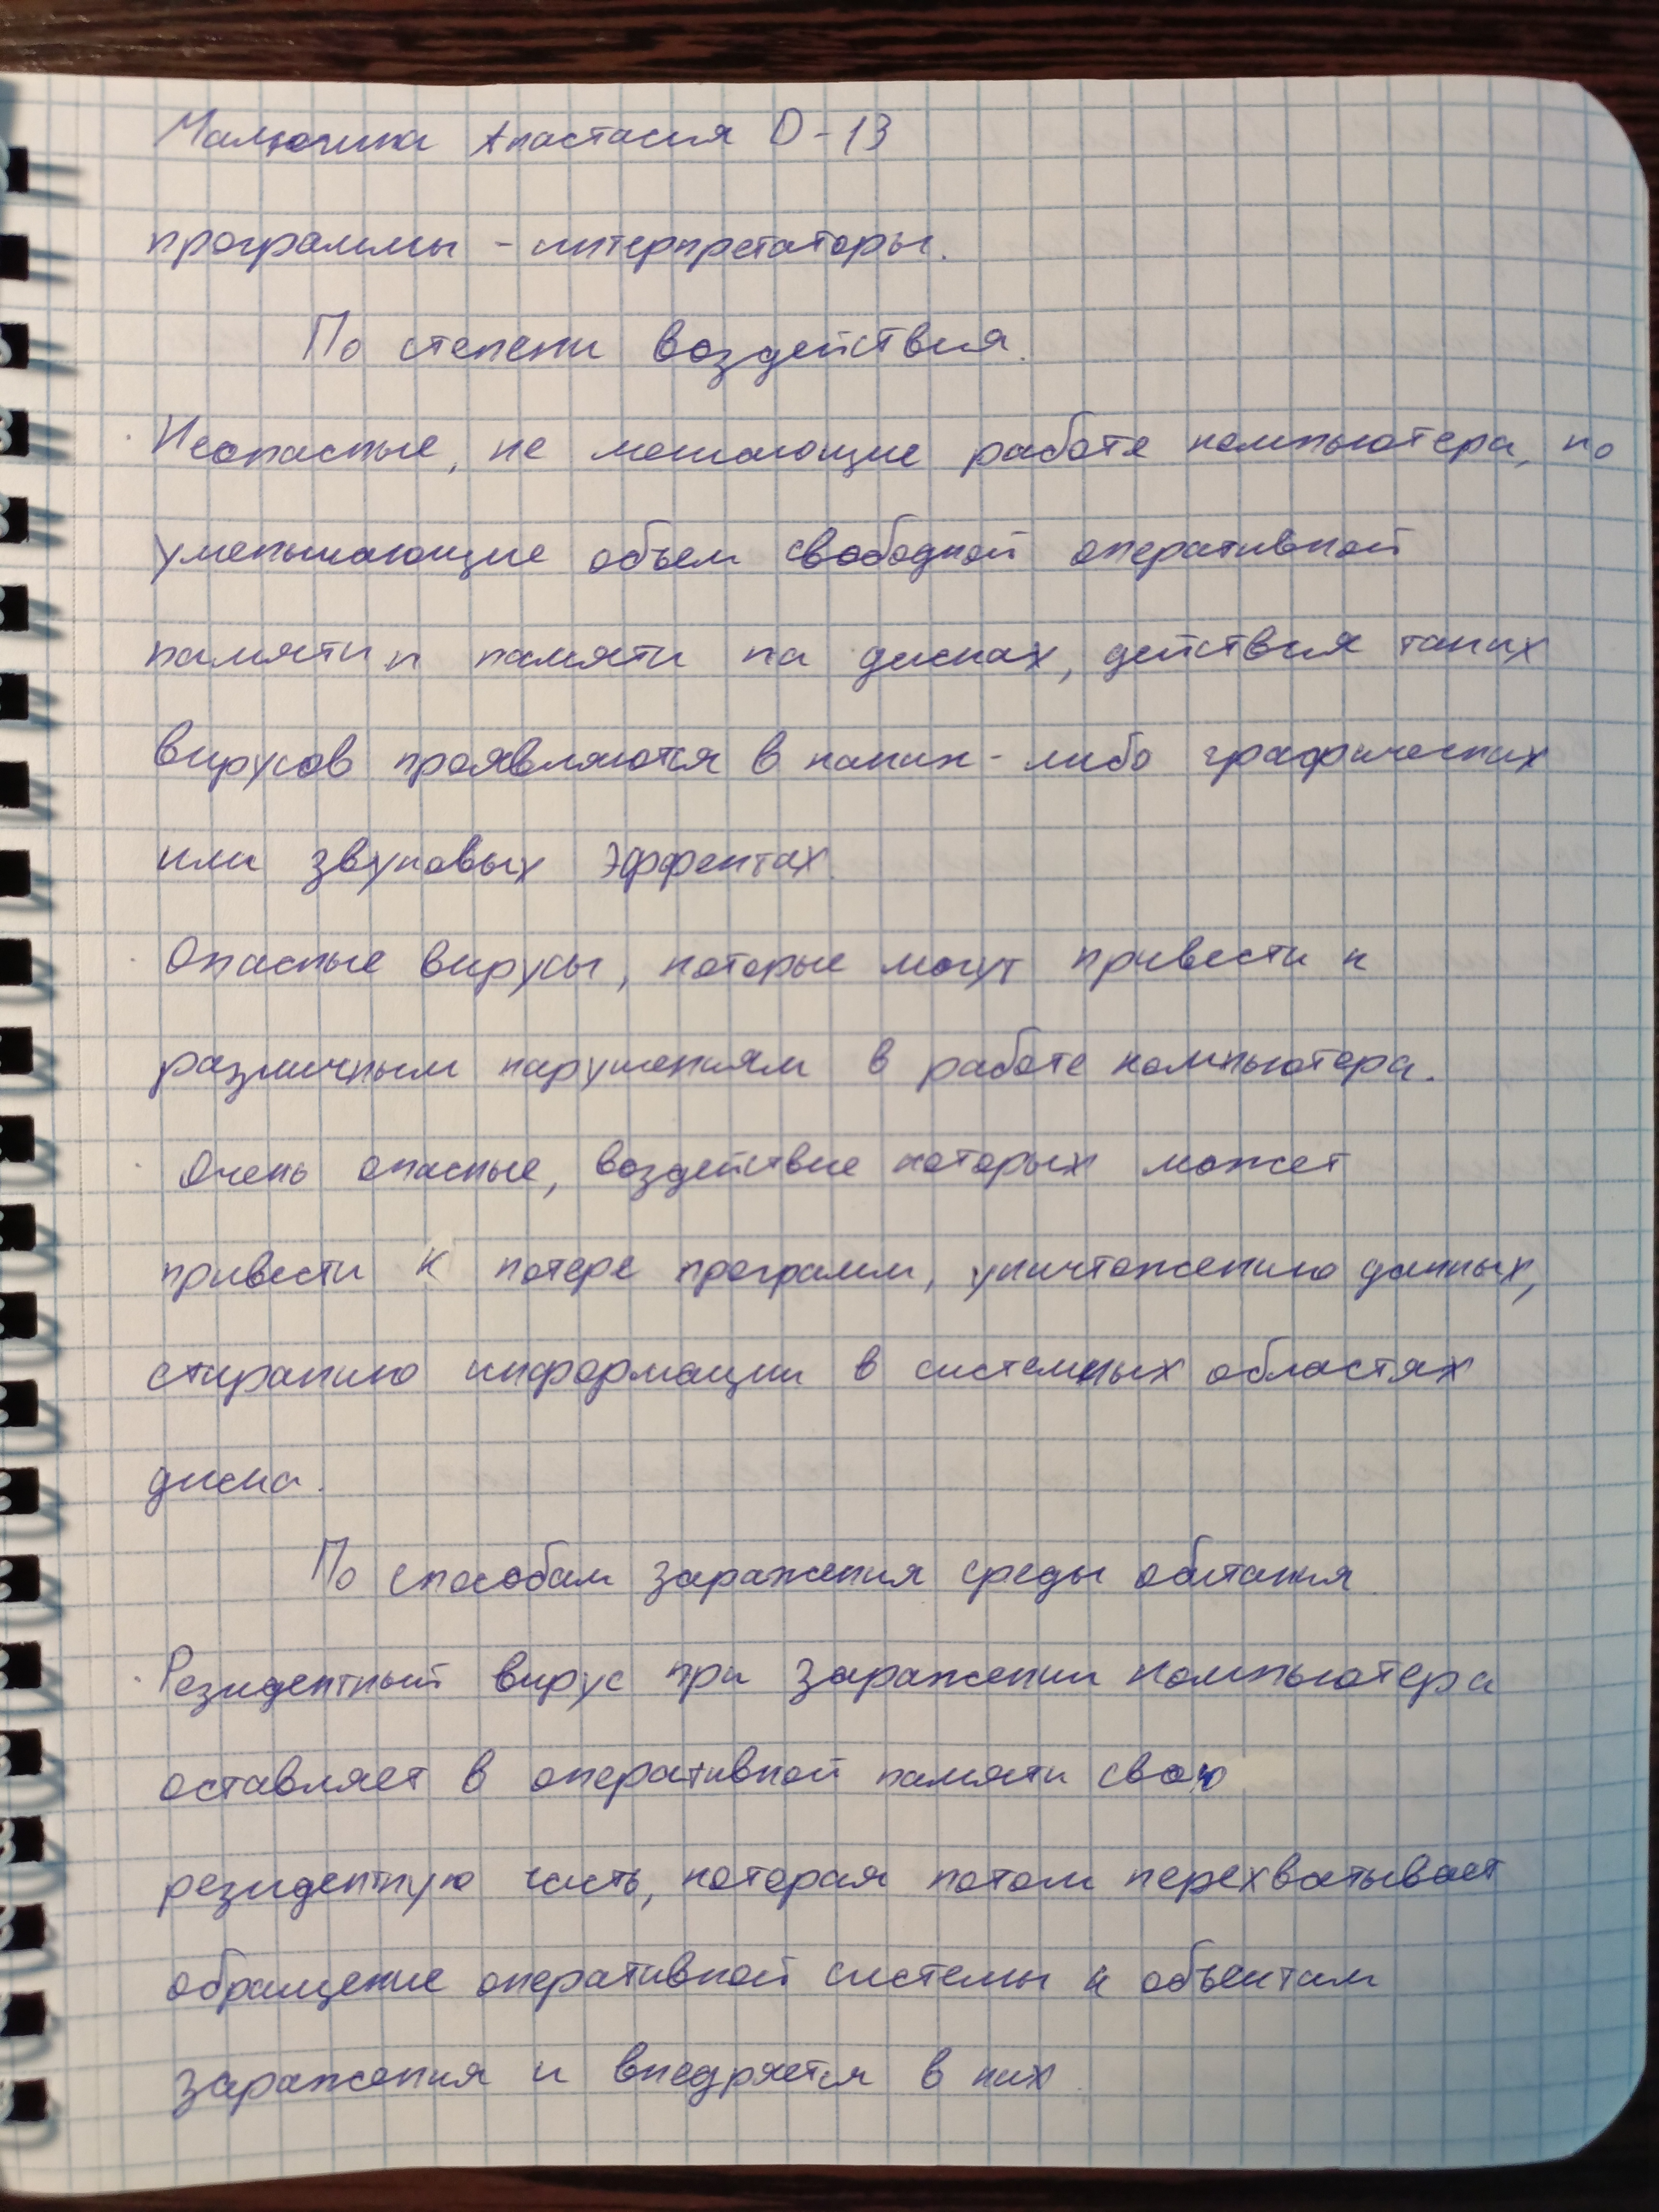 Малючина Анастасия D-13
программы - интерпретаторы.
По степени воздействия.
· Неопасные, не мешающие работе компьютера, но
уменьшающие объем свободной оперативной
памяти и памяти на дисках, действия таких
вирусов проявляются в каких-либо графических
или звуковых эффектах.
· Опасные вирусы, которые могут привести к
различным нарушениям в работе компьютера.
· Очень опасные, воздействие которых может
привести к потере программ, уничтожению данных,
стиранию информации в системных областях
диска.
По способам заражения среды обитания.
· Резидентный вирус при заражении компьютера
оставляет в оперативной памяти свою
резидентную часть, которая потом перехватывает
обращение оперативной системы к объектам
заражения и внедряется в них.